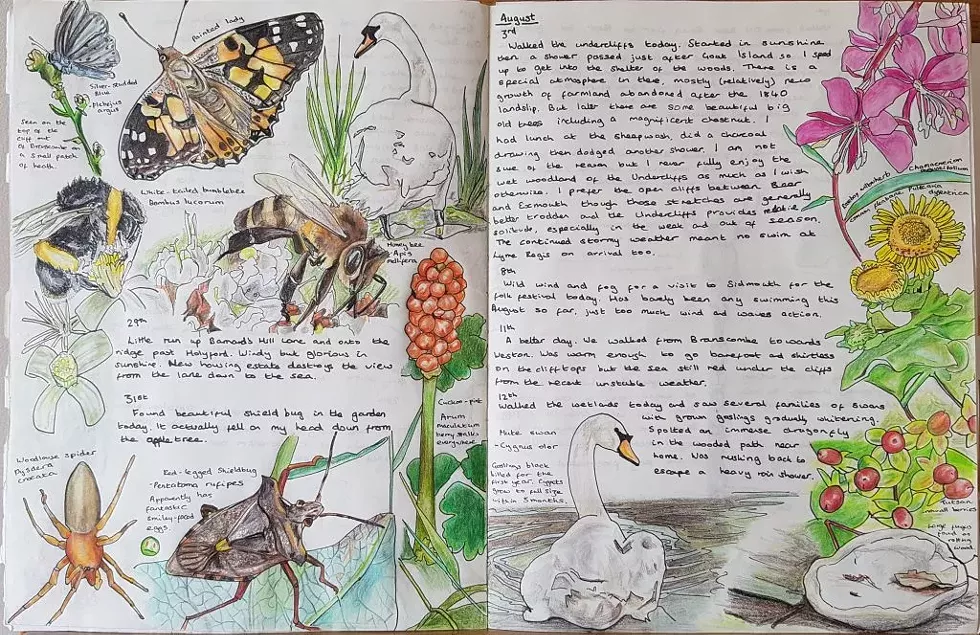 Painted lady
Silver-studded
Blue
-Plebejus
argus
Seen on the
top of the
cliff out
of Branscombe on
a small patch
of heath.
White-tailed bumblebee
Bombus lucorum
Honey bee
-Apis
mellifera
29th
Little run up Barnard's Hill Lane and onto the
ridge past Holyford. Windy but glorious in
sunshine. New housing estate destroys the view
from the lane down to the sea.
31st
Found beautiful shield bug in the garden
today. It actually fell on my head down from
the apple tree.
Cuckoo-pint
Arum
maculatum
berry stalks
everywhere
Woodlouse spider
Dysdera
crocata
Red-legged Shieldbug
-Pentatoma rufipes
Apparently has
fantastic
smiley-faced
eggs
August
3rd
Walked the undercliffs today. Started in sunshine
then a shower passed just after Goat Island so I sped
up to get into the shelter of the woods. There is a
special atmosphere in these mostly (relatively) new
growth of farmland abandoned after the 1840
landslip. But later there are some beautiful big
old trees including a magnificent chestnut. I
had lunch at the sheepwash, did a charcoal
drawing then dodged another shower. I am not
sure of the reason but I never fully enjoy the
wet woodland of the Undercliffs as much as I wish
otherwise. I prefer the open cliffs between Beer
and Exmouth though those stretches are generally
better trodden and the Undercliffs provides relative
solitude, especially in the week and out of season.
The continued stormy weather meant no swim at
Lyme Regis on arrival too.
8th
Wild wind and fog for a visit to Sidmouth for the
folk festival today. Has barely been any swimming this
August so far, just too much wind and waves action.
11th
A better day. We walked from Branscombe towards
Weston. Was warm enough to go barefoot and shirtless
on the clifftops but the sea still red under the cliffs
from the recent unstable weather.
12th
Walked the wetlands today and saw several families of swans
with grown goslings gradually whitening.
Spotted an immense dragonfly
in the wooded path near
home. Was rushing back to
escape a heavy rain shower.
Rosebay willowherb
Chamaenerion
angustifolium
Common fleabane Pulicaria
dysenterica
Mute swan
-Cygnus olor
Goslings black
billed for the
first year. Cygnets
grow to full size
within 5 months.
Tutsan
small berries
Large fungus
found on
rotting
wood